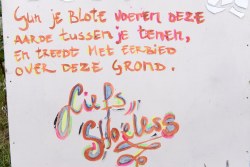 Gun je Blote voeten deze
aarde tussen je tenen,
en treedt met eerbied
over deze grond.
Liefs,
Shoeless